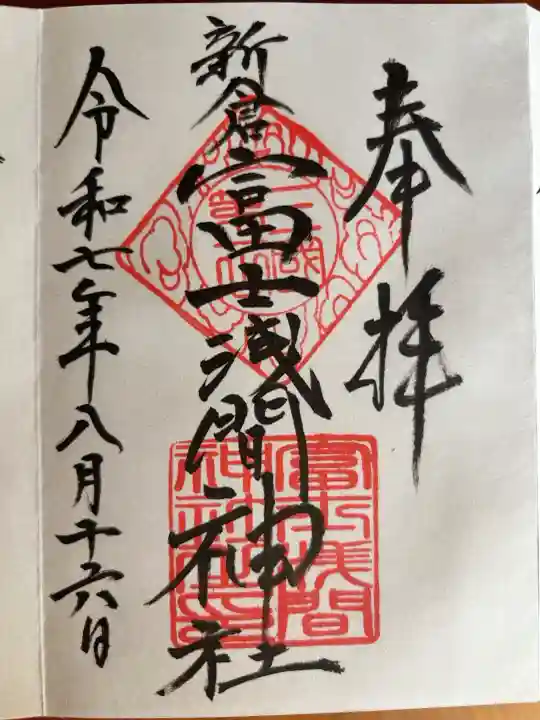 奉拝
新倉富士浅間神社
令和七年八月十六日
富士浅間
神社之印